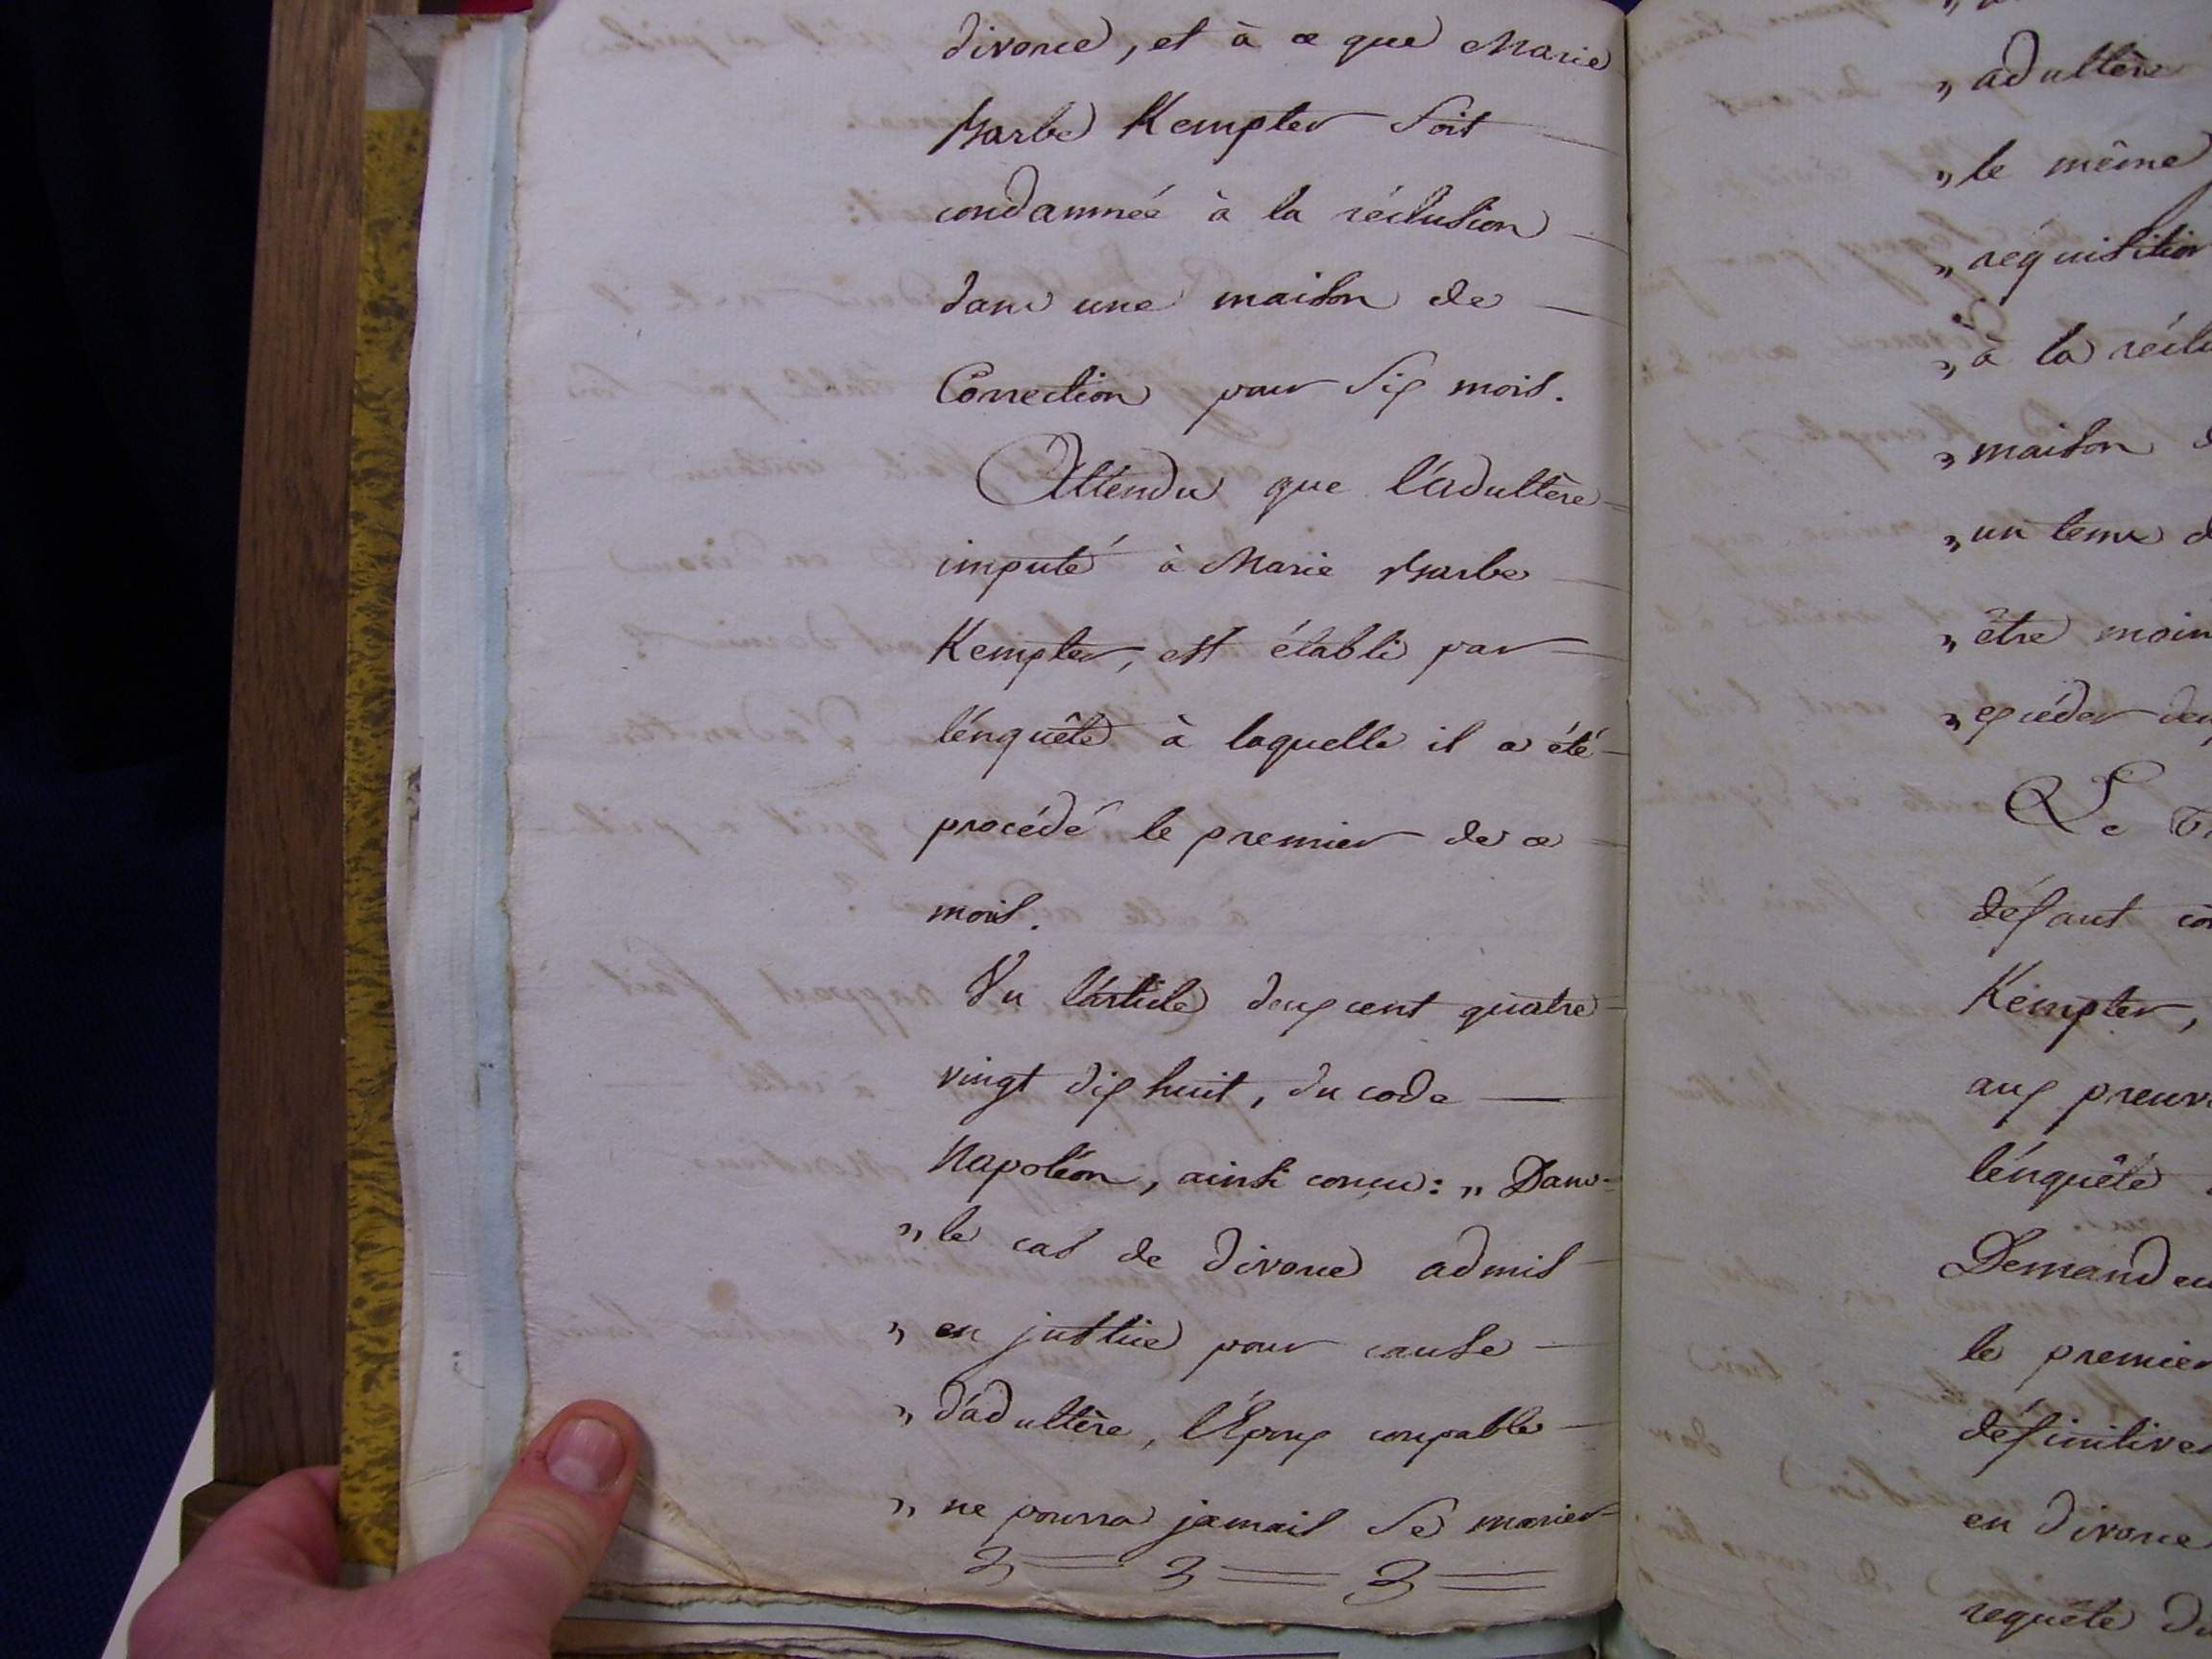 divorce, et à ce que Marie
Barbe Kempter soit
condamnée à la réclusion
dans une maison de
Correction pour six mois.
Attendu que l'adultère
imputé à Marie Barbe
Kempter, est établi par
l'énquête à laquelle il a été
procédé le premier de ce
mois.
Vu l'article deux cent quatre
vingt dix huit, du code
Napoléon, ainsi concu: „ Dans
„ le cas de divorce admis
„ en justice pour cause
„ d'adultère, l'Époux coupable
„ ne pourra jamais se marier
„ adultère
„ le même
„ réquisition
„ à la
„ maison
„ un tems
„ être
„ excéder
Le
défaut
Kempter,
aux
l'énquête
le premier
en divorce
requête